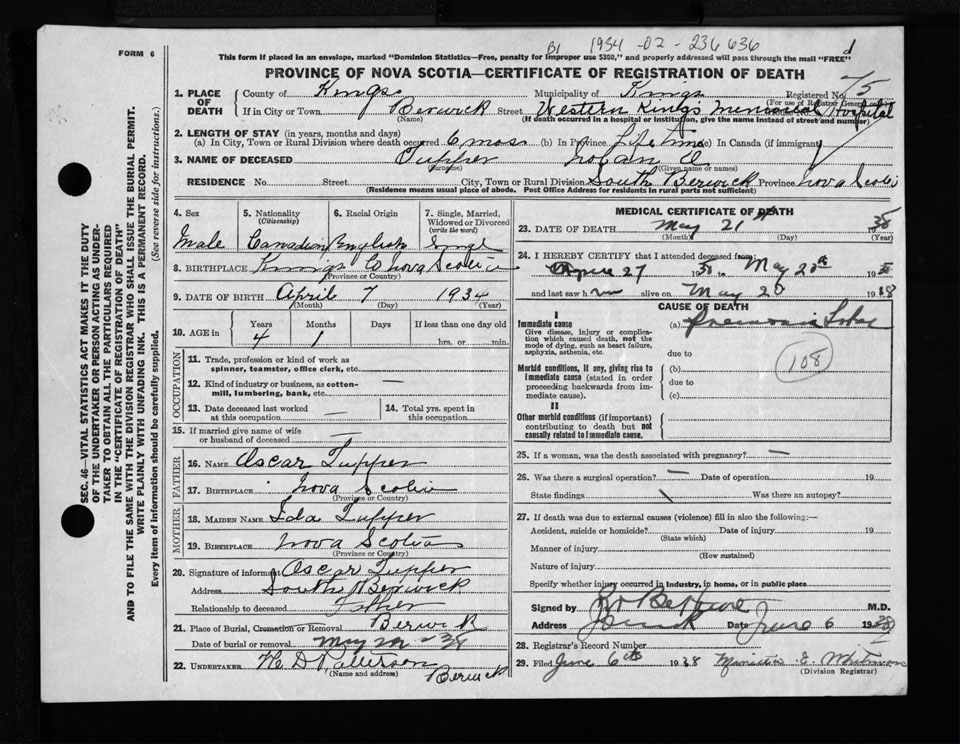 FORM 6
B1 1934 - 02 - 236636
d
This form if placed in an envelope, marked "Dominion Statistics—Free, penalty for improper use $300," and properly addressed will pass through the mail "FREE"
PROVINCE OF NOVA SCOTIA—CERTIFICATE OF REGISTRATION OF DEATH
1. PLACE OF DEATH County of Kings Municipality of Kings Registered No. 75
If in City or Town Berwick Street Western Kings Memorial Hospital
(Name) (If death occurred in a hospital or institution, give the name instead of street and number)
2. LENGTH OF STAY (in years, months and days)
(a) In City, Town or Rural Division where death occurred 6 mos (b) In Province Life time (c) In Canada (if immigrant)
3. NAME OF DECEASED Tupper Logan
(Surname) (Given name or names)
RESIDENCE No. Street City, Town or Rural Division South Berwick Province Nova Scotia
(Residence means usual place of abode. Post Office Address for residents in rural parts not sufficient)
4. Sex 5. Nationality (Citizenship) 6. Racial Origin 7. Single, Married, Widowed or Divorced (write the word)
Male Canadian English Single
8. BIRTHPLACE Kings Co Nova Scotia
(Province or Country)
9. DATE OF BIRTH April 7 1934
(Month) (Day) (Year)
10. AGE in Years Months Days If less than one day old
4 1 hrs. or min.
OCCUPATION
11. Trade, profession or kind of work as spinner, teamster, office clerk, etc.
12. Kind of industry or business, as cotton-mill, lumbering, bank, etc. —
13. Date deceased last worked at this occupation — 14. Total yrs. spent in this occupation
15. If married give name of wife or husband of deceased —
FATHER
16. NAME Oscar Tupper
17. BIRTHPLACE Nova Scotia
(Province or Country)
MOTHER
18. MAIDEN NAME Ida Tupper
19. BIRTHPLACE Nova Scotia
(Province or Country)
20. Signature of informant Oscar Tupper
Address South Berwick
Relationship to deceased Father
21. Place of Burial, Cremation or Removal Berwick
Date of burial or removal May 22 - 38
22. UNDERTAKER
(Name and address) Berwick
MEDICAL CERTIFICATE OF DEATH
23. DATE OF DEATH May 21 38
(Month) (Day) (Year)
24. I HEREBY CERTIFY that I attended deceased from:
April 27 19 to May 20th 19
and last saw h alive on May 20 1938
CAUSE OF DEATH
I
Immediate cause
Give disease, injury or complication which caused death, not the mode of dying, such as heart failure, asphyxia, asthenia, etc.
(a) Pneumonia Lobar
due to
108
Morbid conditions, if any, giving rise to immediate cause (stated in order proceeding backwards from immediate cause).
(b)
due to
(c)
II
Other morbid conditions (if important) contributing to death but not causally related to immediate cause.
25. If a woman, was the death associated with pregnancy? —
26. Was there a surgical operation? — Date of operation 19
State findings Was there an autopsy?
27. If death was due to external causes (violence) fill in also the following:—
Accident, suicide or homicide? Date of injury 19
(State which)
Manner of injury
(How sustained)
Nature of injury
Specify whether injury occurred in industry, in home, or in public place
Signed by M.D.
Address Date June 6 1938
28. Registrar's Record Number
29. Filed June 6th 1938
(Division Registrar)
SEC. 46—VITAL STATISTICS ACT MAKES IT THE DUTY
OF THE UNDERTAKER OR PERSON ACTING AS UNDER-
TAKER TO OBTAIN ALL THE PARTICULARS REQUIRED
IN THE "CERTIFICATE OF REGISTRATION OF DEATH"
AND TO FILE THE SAME WITH THE DIVISION REGISTRAR WHO SHALL ISSUE THE BURIAL PERMIT.
WRITE PLAINLY WITH UNFADING INK. THIS IS A PERMANENT RECORD.
Every item of information should be carefully supplied. (See reverse side for instructions.)